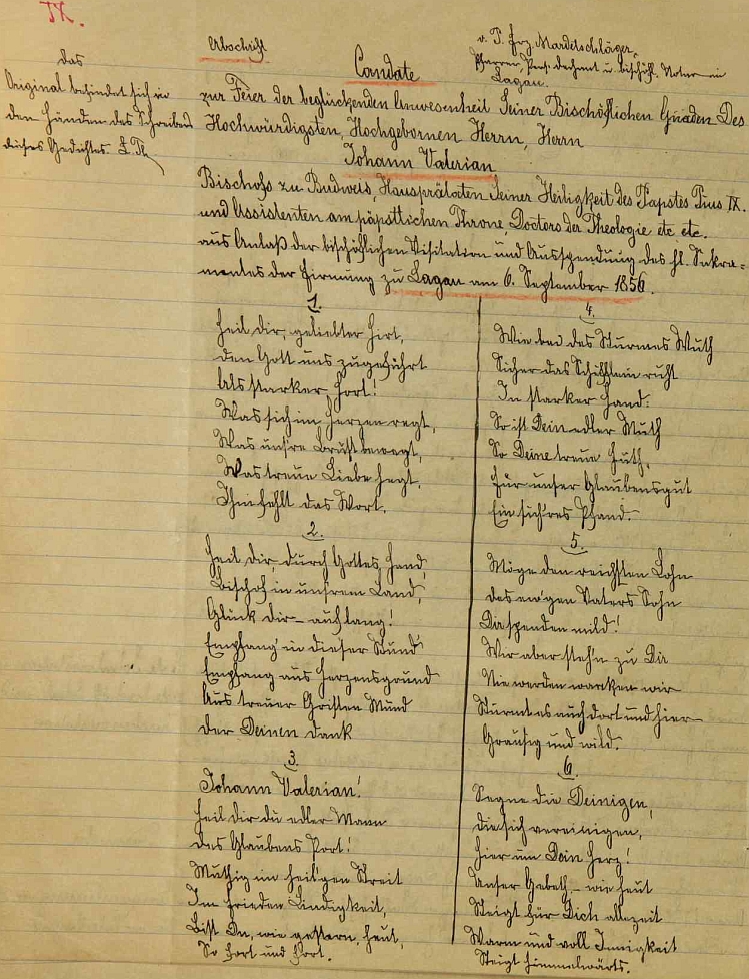 IX.
Abschrift
v. P. Frz. Mardetschläger,
Pfarrer, Pers. Dechant u. bischöfl. Notar in
Gagau.
das
Original befindet sich in
den Händen des Schreibers
dieses Gedichtes
Cantate
zur Feier der beglückenden Anwesenheit Seiner Bischöflichen Gnaden Des
Hochwürdigsten, Hochgebornen Herrn, Herrn
Johann Valerian
Bischofs zu Budweis, Hausprälaten Seiner Heiligkeit des Papstes Pius IX.
und Assistenten am päpstlichen Throne, Doctors der Theologie etc etc.
aus Anlaß der bischöflichen Visitation und Ausspendung des hl. Sakra=
mentes der Firmung zu Gagau am 6. September 1856.
1.
Heil dir, geliebter Hirt,
Den Gott uns zugeführt
Als starker Hort!
Was sich im Herzen regt,
Was uns're Brust bewegt,
Was treue Liebe hegt,
Ihm fehlt das Wort.
2.
Heil dir, durch Gottes Hand,
Bischof in unsrem Land,
Glück dir – auf lang!
Empfang' in dieser Stund
Empfang aus Herzensgrund
Aus treuer Christen Mund
Der Deinen Dank
3.
Johann Valerian!
Heil dir du edler Mann
Des Glaubens Port!
Muthig im heil'gen Streit
Im Frieden Lindigkeit,
Bist Du, wie gestern, heut,
So fort und fort.
4.
Wie bei des Sturmes Wuth
Sicher das Schifflein ruht
In starker Hand:
So ist Dein edler Muth
So Deine treue Huth,
Für unser Glaubensgut
Ein sich'res Pfand.
5.
Möge den reichsten Lohn
Des ew'gen Vaters Sohn
Dir spenden mild!
Wir aber steh'n zu Dir
Nie werden wanken wir
Stürmt es auch dort und hier
Grausig und wild.
6.
Segne die Deinigen,
Die sich vereinigen,
Hier um Dein Herz!
Unser Gebeth, – wie heut
Steigt für Dich allezeit
Warm und voll Innigkeit
Steigt himmelwärts.